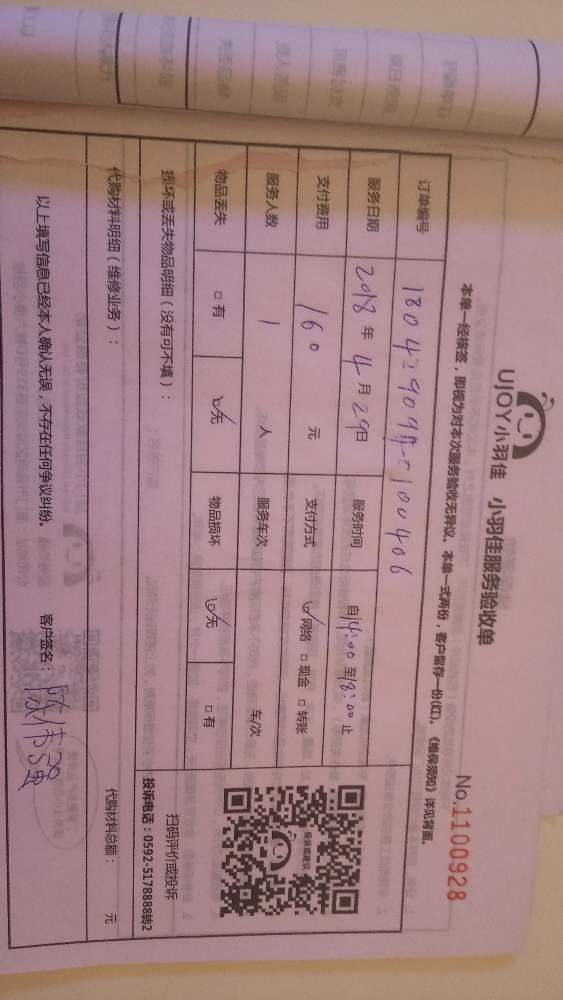 UJOY小羽佳 小羽佳服务验收单
No.1100928
本单一经核签，即视为对本次服务验收无异议，本单一式两份，客户留存一份(红)，《维保须知》详见背面。
订单编号
服务日期 2018 年 4 月 29 日 服务时间 自 14:00 至 18:00 止
支付费用 160 元 支付方式 ☑网络 □现金 □转账
服务人数 1 人 服务车次 车/次
物品丢失 □有 ☑无 物品损坏 ☑无 □有
损坏或丢失物品明细（没有可不填）：
扫码评价或投诉
投诉电话：0592-5178888转2
投诉或建议
代购材料明细（维修业务）： 代购材料总额： 元
以上填写信息已经本人确认无误，不存在任何争议纠纷。 客户签名：陈伟强